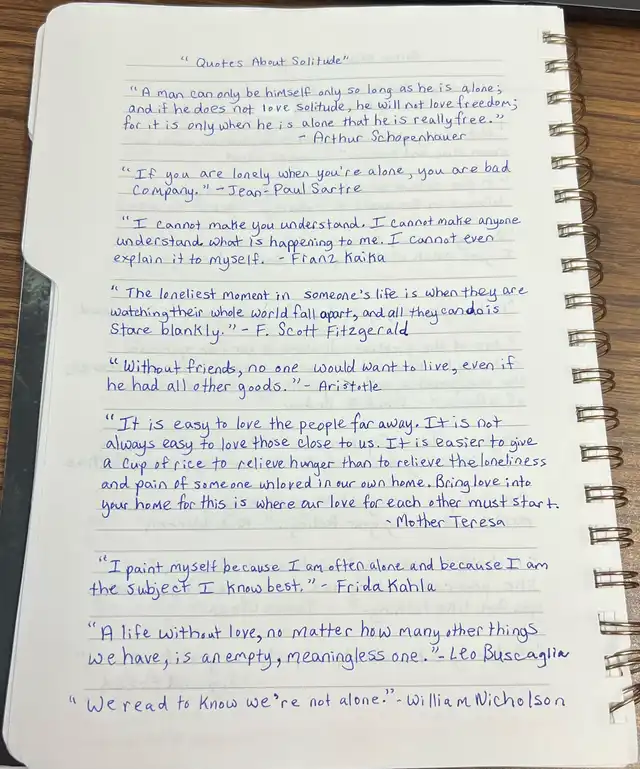 " Quotes About Solitude"
"A man can only be himself only so long as he is alone;
and if he does not love solitude, he will not love freedom;
for it is only when he is alone that he is really free."
- Arthur Schopenhauer
"If you are lonely when you're alone, you are bad
company." - Jean-Paul Sartre
"I cannot make you understand. I cannot make anyone
understand what is happening to me. I cannot even
explain it to myself. - Franz Kafka
" The loneliest moment in someone's life is when they are
watching their whole world fall apart, and all they can do is
stare blankly." - F. Scott Fitzgerald
"Without friends, no one would want to live, even if
he had all other goods." - Aristotle
"It is easy to love the people far away. It is not
always easy to love those close to us. It is easier to give
a cup of rice to relieve hunger than to relieve the loneliness
and pain of someone unloved in our own home. Bring love into
your home for this is where our love for each other must start.
- Mother Teresa
"I paint myself because I am often alone and because I am
the subject I know best." - Frida Kahla
"A life without love, no matter how many other things
we have, is an empty, meaningless one." - Leo Buscaglia
" We read to know we're not alone." - William Nicholson